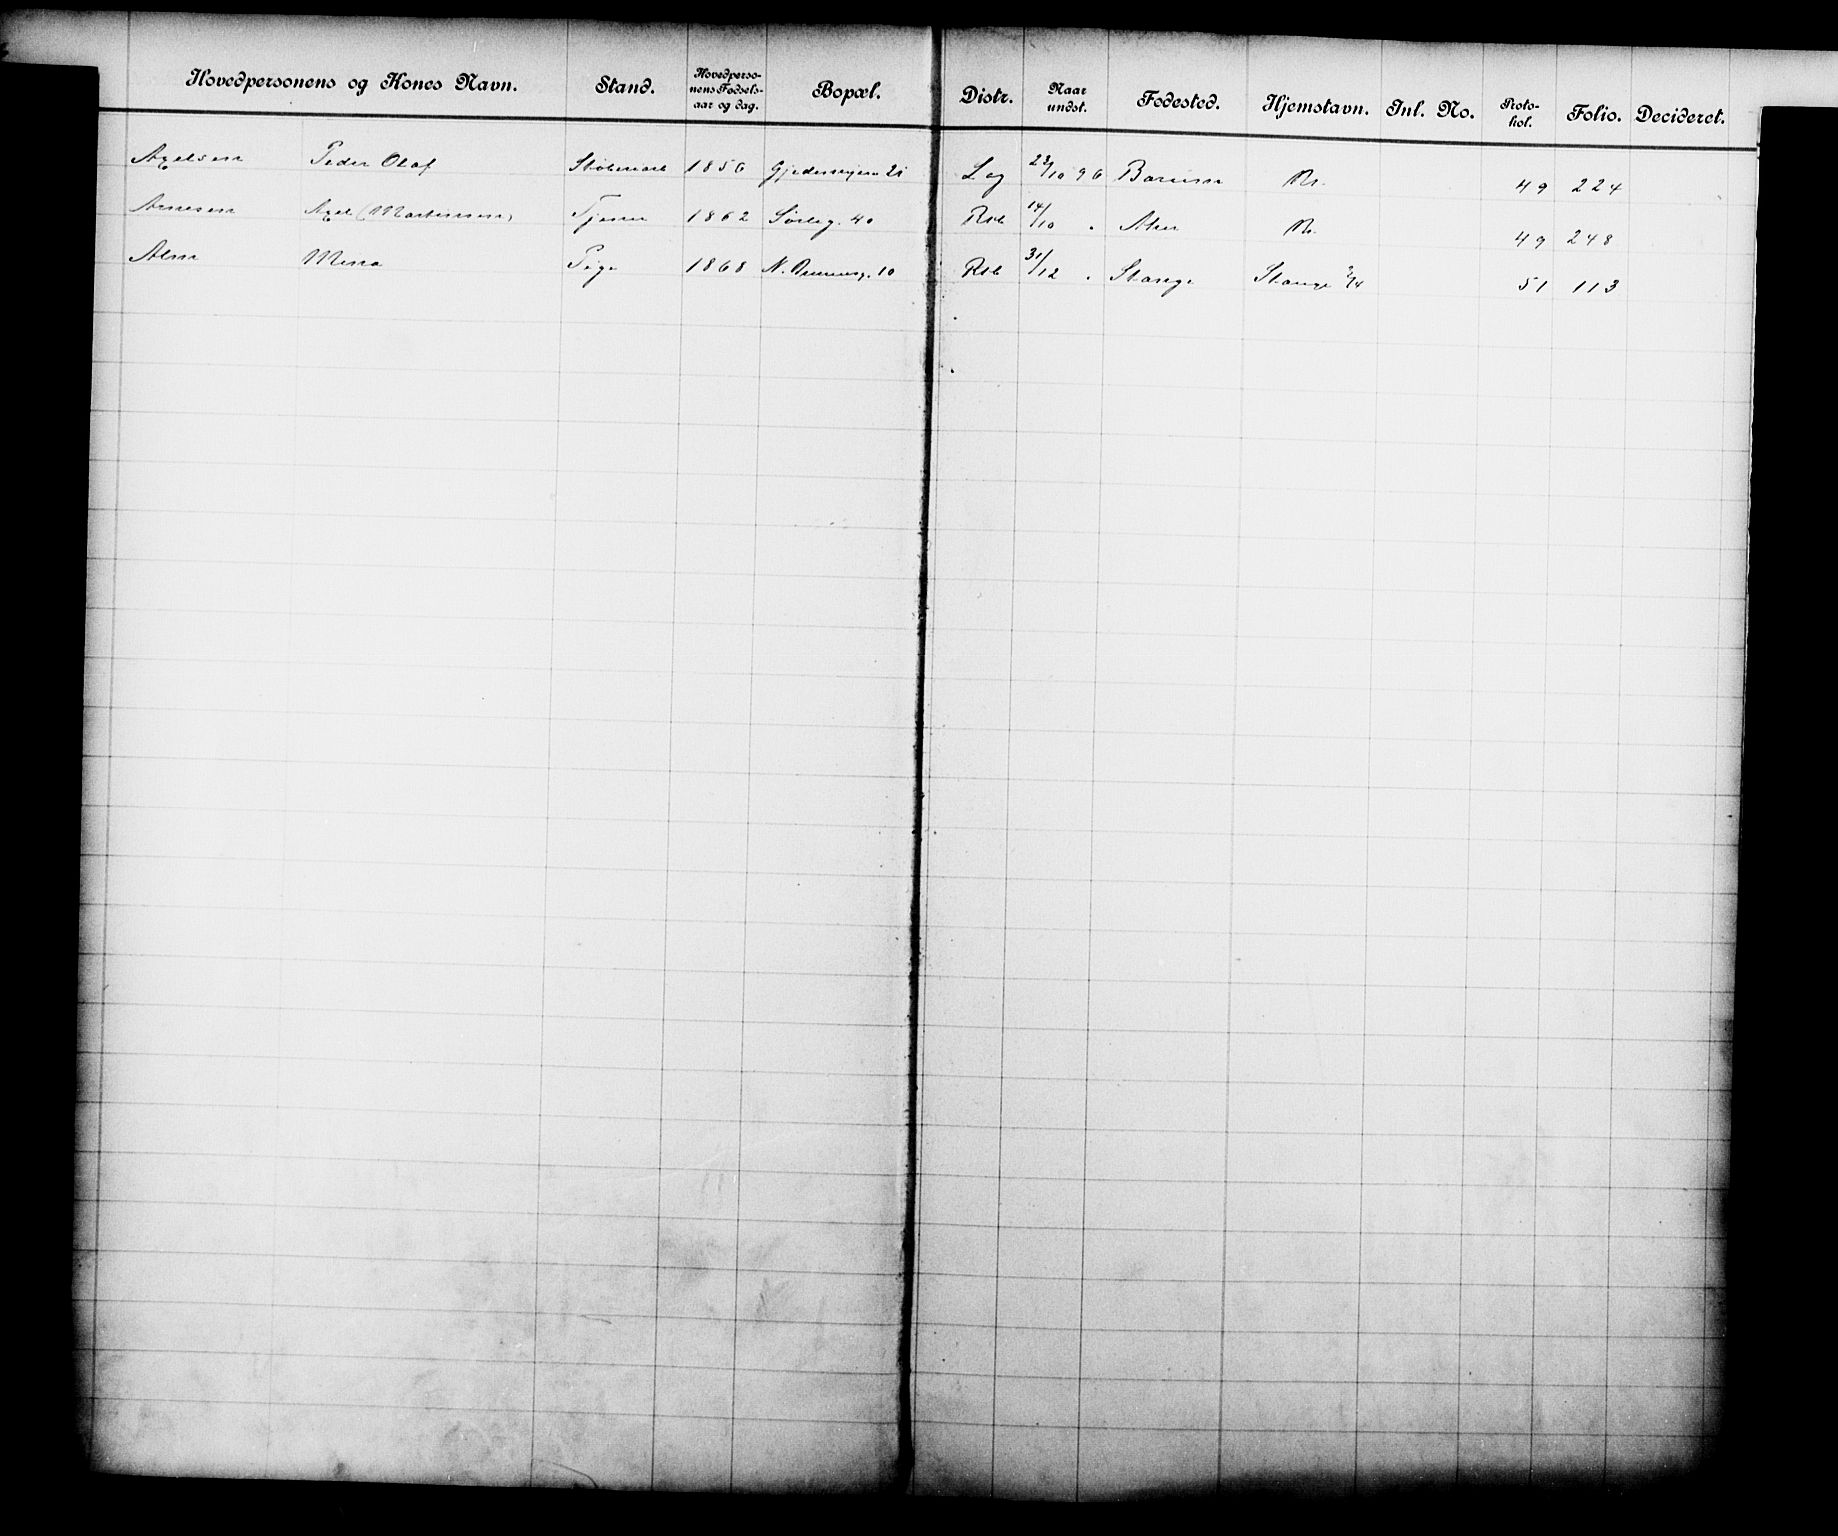 Hovedpersonens og Kones Navn. Stand. Hovedperso-nens Fødsels-aar og dag. Bopæl. Distr. Naar undst. Fødested. Hjemstavn. Inl. No. Proto-kol. Folio. Decideret.
Axelsen Peder Olaf Støberiarb 1856 21 Lag 23/10 96 Bærum Kr. 49 224
Arnesen Axel (Martinsen) Tjener 1862 Sørbg. 40 Rstb 14/10 " Aker Kr. 49 248
Alm Mina Pige 1868 10 Rstb 31/12 " Stange Stange 2/4 51 113